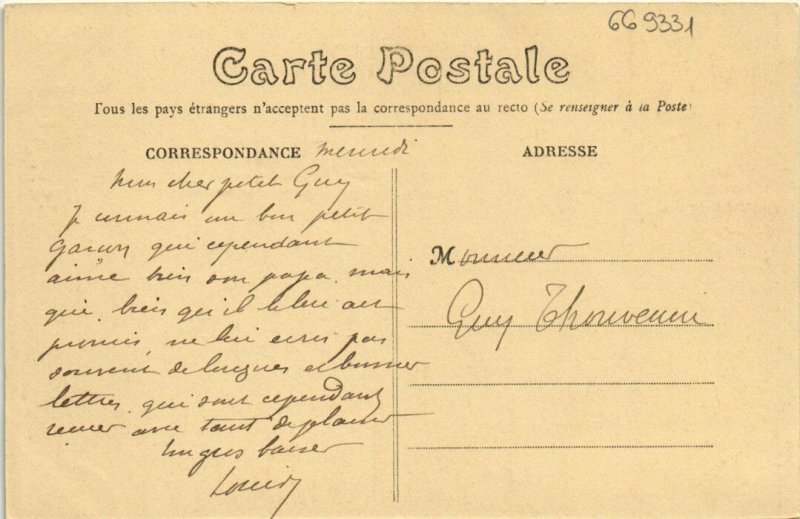 669331
Carte Postale
Tous les pays étrangers n'acceptent pas la correspondance au recto (Se renseigner à la Poste)
CORRESPONDANCE mercredi
ADRESSE
Mon cher petit Guy
Je connais un bon petit
garçon qui cependant
aime bien son papa mais
qui, bien qu'il le lui ait
promis, ne lui écris pas
souvent de longues et bonnes
lettres qui sont cependant
reçues avec tant de plaisir
Un gros baiser
Monsieur
Guy Thouvenin